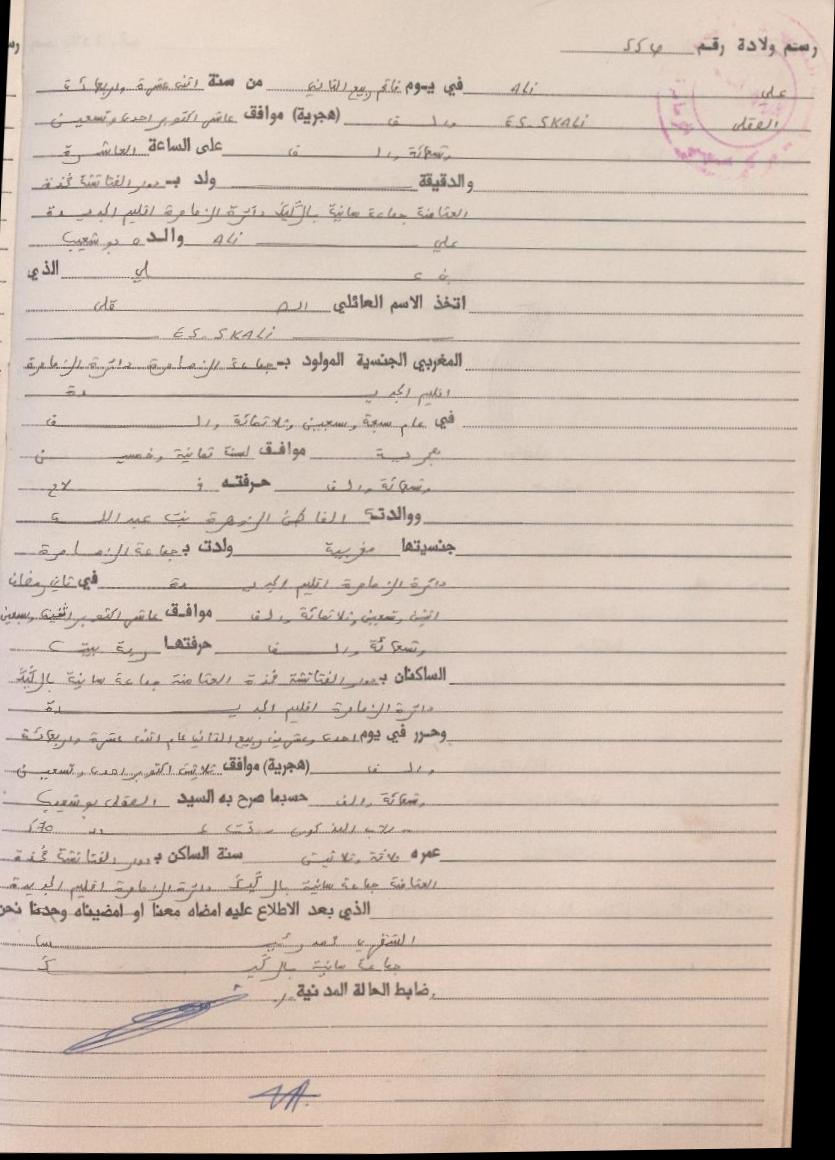 رسم ولادة رقم 556
علي ALi في يوم فاتح ربيع الثاني من سنة اثنى عشرة واربعمائة
الصقلى ES-SKALi والف (هجرية) موافق عاشر اكتوبر احدى وتسعين
وتسعمائة والف على الساعة العاشرة
والدقيقة ولد بـ دوار الفتاتشة فخدة
العثامنة جماعة سانية بالرگيگ دائرة الزمامرة اقليم الجديدة
علي ALi والده بوشعيب
بن علي الذي
اتخذ الاسم العائلي الصقلى
ES-SKALi
المغربي الجنسية المولود بـ جماعة الزمامرة دائرة الزمامرة
اقليم الجديدة
في عام سبعة وسبعين وثلاثمائة والف
هجرية موافق لسنة ثمانية وخمسين
وتسعمائة والف حرفته فلاح
ووالدته الزهرة بنت عبد الله
جنسيتها مغربية ولدت بـ جماعة الزمامرة
دائرة الزمامرة اقليم الجديدة في ثاني رمضان
اثنين وتسعين وثلاثمائة والف موافق عاشر اكتوبر اثنين وسبعين
وتسعمائة والف حرفتها ربة بيت
الساكنان بـ دوار الفتاتشة فخدة العثامنة جماعة سانية بالرگيگ
دائرة الزمامرة اقليم الجديدة
وحرر في يوم احدى وعشرين ربيع الثاني عام اثنى عشرة واربعمائة
والف (هجرية) موافق ثلاثين اكتوبر احدى وتسعين
وتسعمائة والف حسبما صرح به السيد الصقلى بوشعيب
570
عمره ثلاثة وثلاثين سنة الساكن بـ دوار الفتاتشة فخدة
العثامنة جماعة سانية بالرگيگ دائرة الزمامرة اقليم الجديدة
الذي بعد الاطلاع عليه امضاه معنا او امضيناه وحدنا نحن
جماعة سانية بالرگيگ
ضابط الحالة المدنية